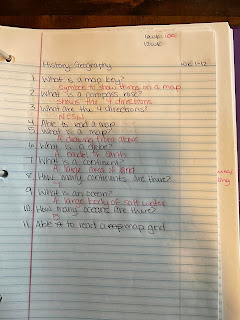 History/Geography WK 1-12
1. What is a map key?
Symbols to show things on a map
2. What is a compass rose?
Shows the 4 directions
3. What are the 4 directions?
NESW
4. Able to read a map
5. What is a map?
A drawing from above
6. What is a globe?
A model of Earth
7. What is a continent?
A large area of land
8. How many continents are there?
7
9. What is an ocean?
A large body of salt water
10. How many oceans are there?
5
11. Able to read a map grid